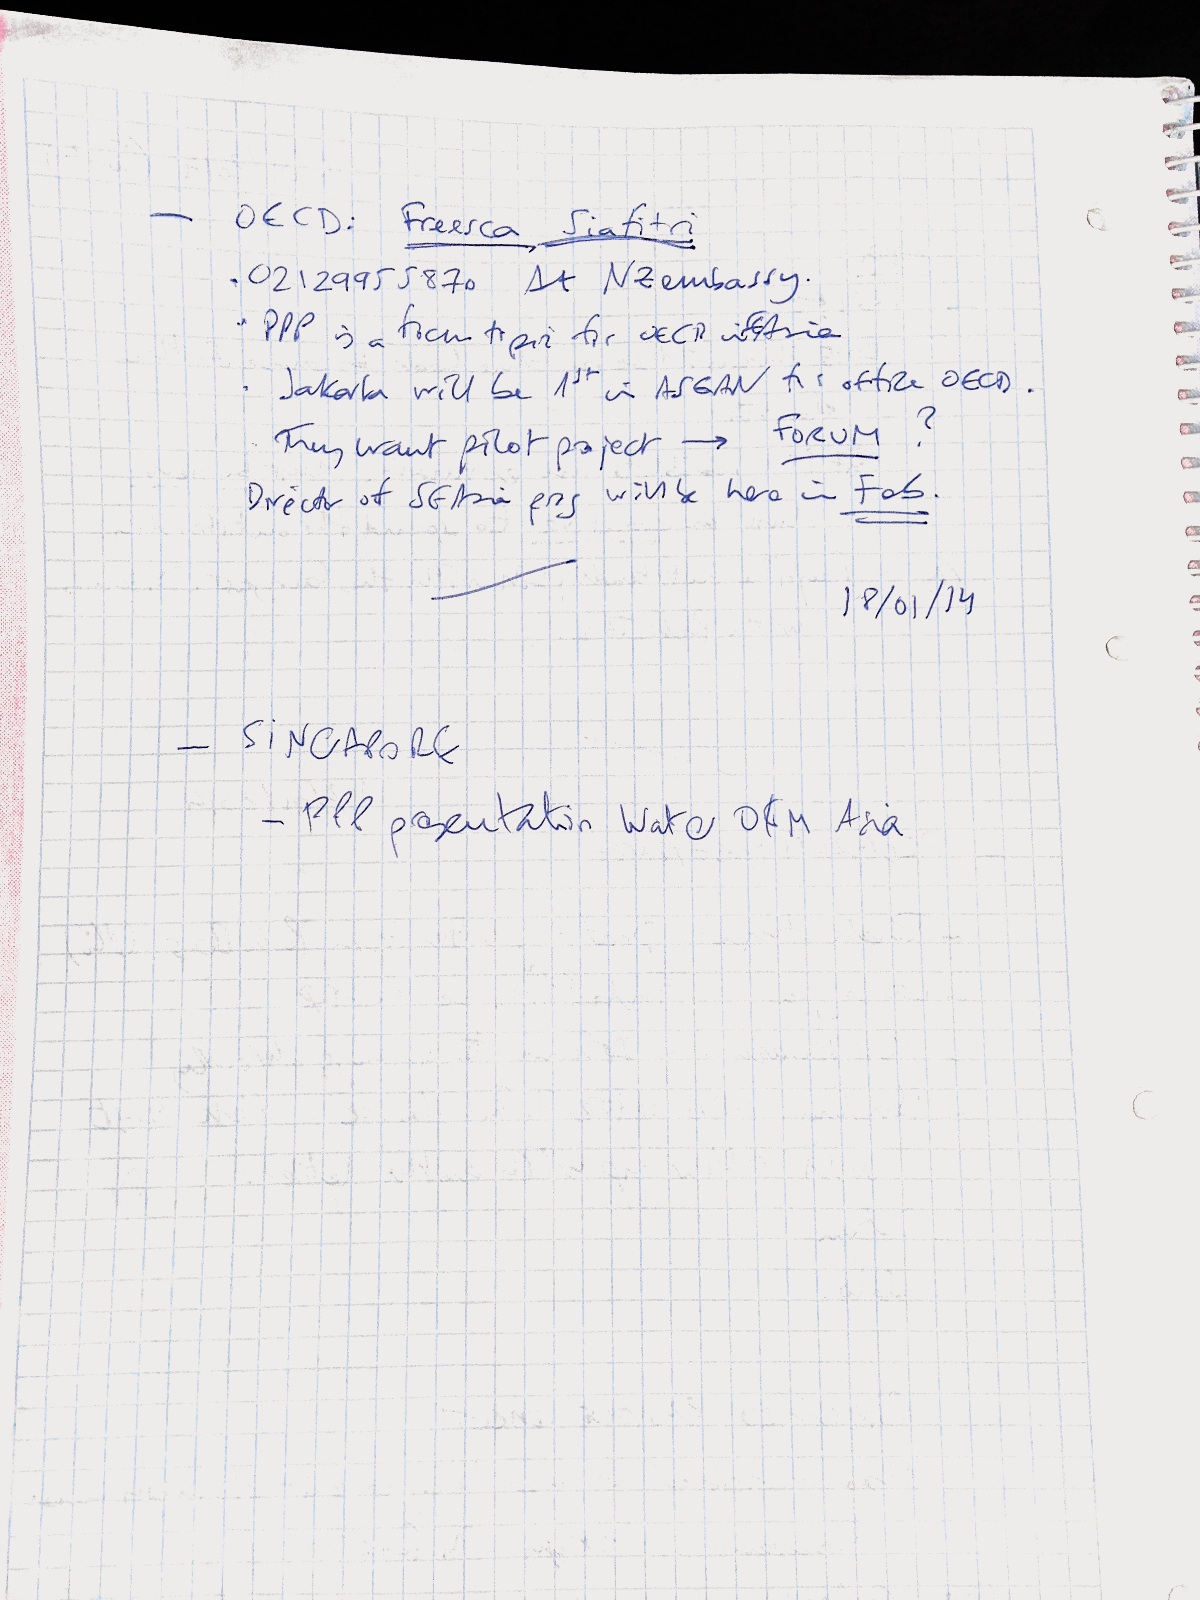 — OECD: Freesca Siafitri
. 02129955870 At NZembassy.
. PPP is a focus topic for OECD in SEAsia
. Jakarta will be 1st in ASEAN for office OECD.
. They want pilot project → FORUM ?
Director of SEAsia prg will be here in Feb.
18/01/14
— SINGAPORE
– PPP presentation Water O&M Asia